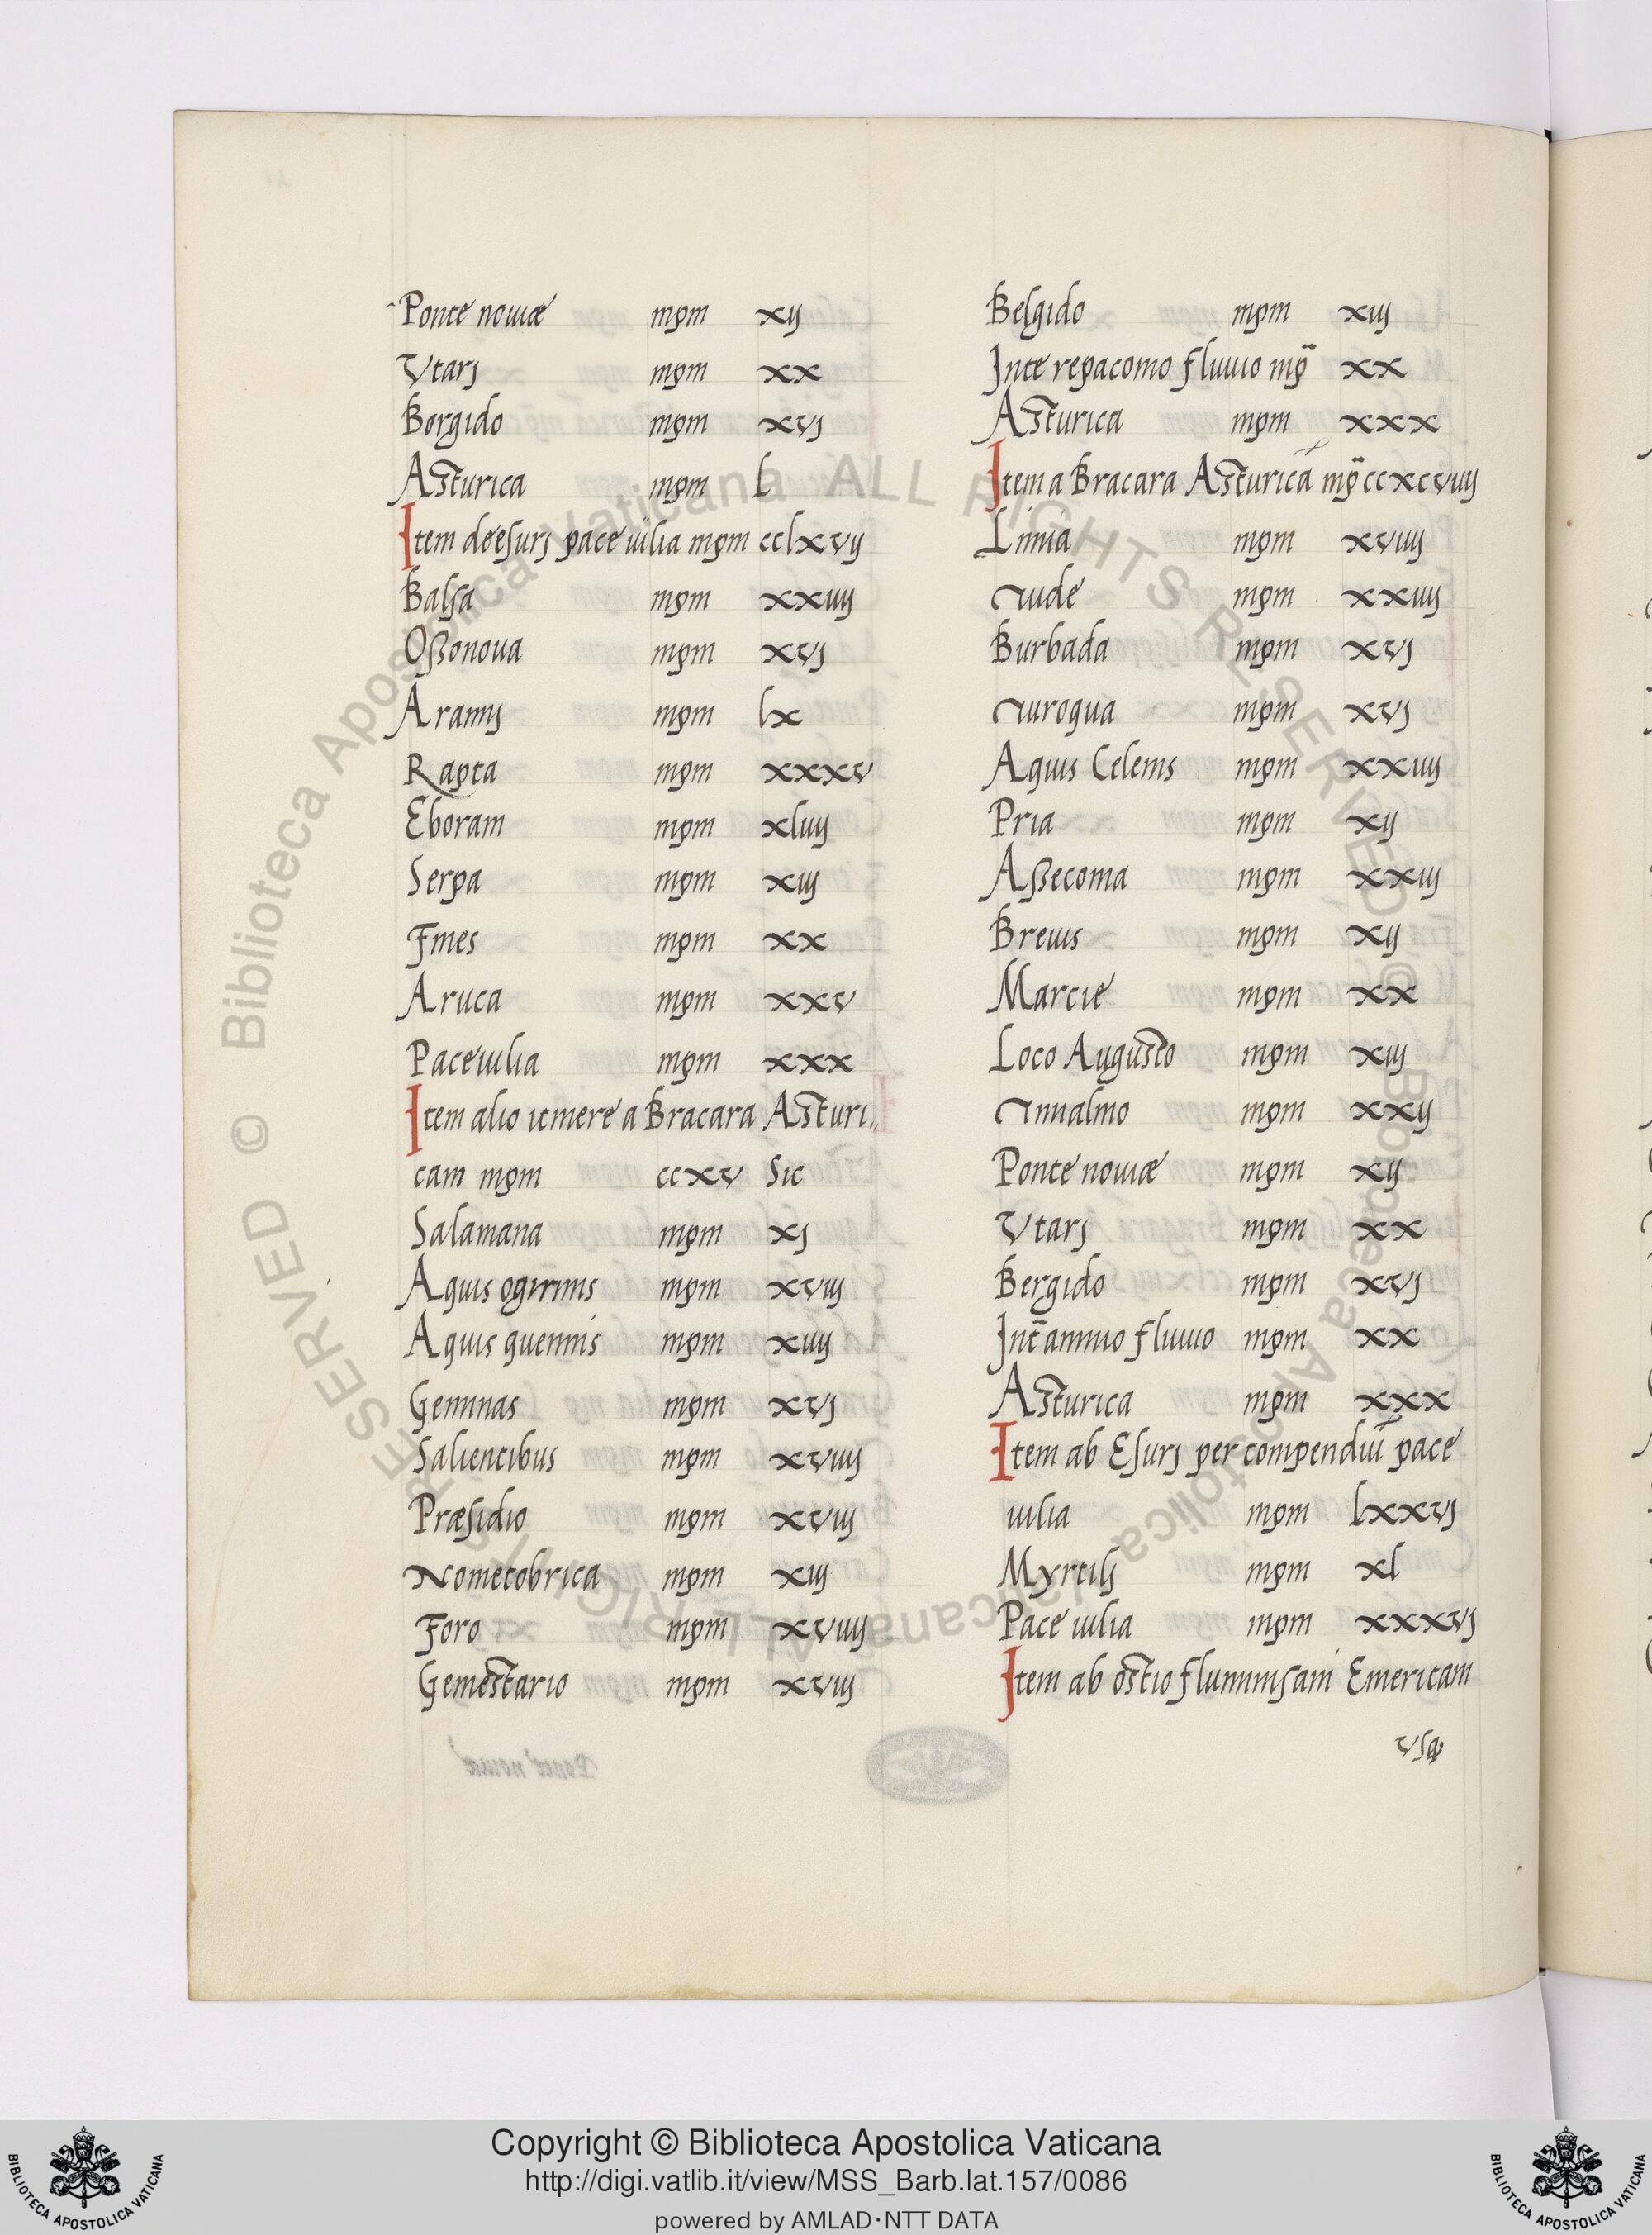 Ponte nouiæ mpm xij
Vtarj mpm xx
Borgido mpm xvj
Asturica mpm l
Item deesurj pace iulia mpm cclxvij
Balsa mpm xxiiij
Ossonoua mpm xvj
Aranij mpm lx
Rapta mpm xxxv
Eboram mpm xliiij
Serpa mpm xiij
Fines mpm xx
Aruca mpm xxv
Paceiulia mpm xxx
Item alio itinere a Bracara Asturi
cam mpm ccxv Sic
Salamana mpm xj
Aquis oginnis mpm xviij
Aquis quennis mpm xiiij
Geminas mpm xvj
Salientibus mpm xviiij
Præsidio mpm xviij
Nometobrica mpm xiij
Foro mpm xviiij
Gemestario mpm xviij
Belgido mpm xiij
Inte repacomo fluuio mp̄ xx
Asturica mpm xxx
Item a Bracara Asturicā mp̄ ccxcviiij
Limia mpm xviiij
Tude mpm xxiiij
Burbada mpm xvj
Turoqua mpm xvj
Aquis Celenis mpm xxiiij
Pria mpm xij
Assecoma mpm xxiij
Breuis mpm xij
Marcie mpm xx
Loco Augusto mpm xiij
Tinnalmo mpm xxij
Ponte nouiæ mpm xij
Vtarj mpm xx
Bergido mpm xvj
Int̄ amnio fluuio mpm xx
Asturica mpm xxx
Item ab Esurj per compendiū pace
iulia mpm lxxvj
Myrtilj mpm xl
Pace iulia mpm xxxvj
Item ab ostio fluminis ani Emeritam
vsqȝ
© Biblioteca Apostolica Vaticana ALL RIGHTS RESERVED © Biblioteca Apostolica Vaticana ALL RIGHTS RESERVED
Copyright © Biblioteca Apostolica Vaticana
http://digi.vatlib.it/view/MSS_Barb.lat.157/0086
powered by AMLAD·NTT DATA
BIBLIOTECA APOSTOLICA VATICANA
BIBLIOTECA APOSTOLICA VATICANA